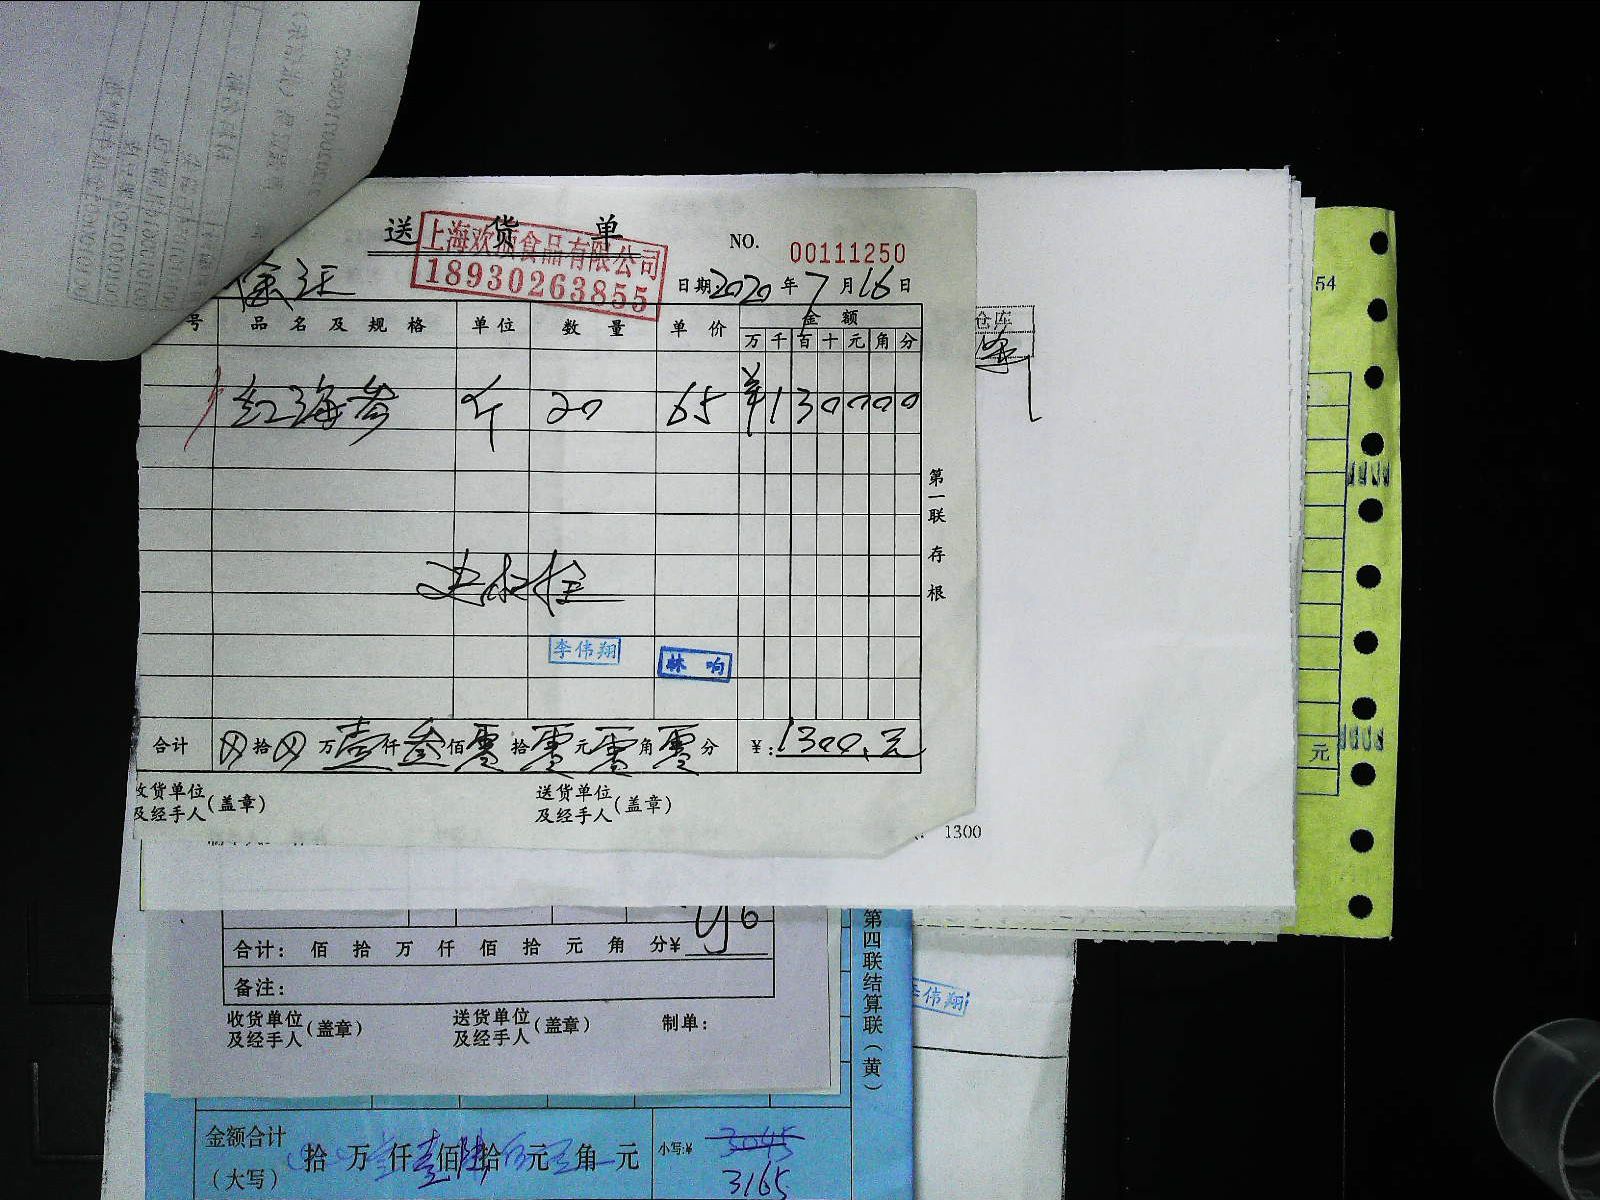 送货单
上海欢 食品有限公司
18930263855
NO. 00111250
日期 2020 年 7 月 16 日
徐汇
号 品名及规格 单位 数量 单价 金额
万 千 百 十 元 角 分
红海参 斤 20 65 ¥130000
第一联 存根
李伟翔
林响
合计 拾 万 壹 仟 叁 佰 零 拾 零 元 零 角 零 分 ¥: 1300.元
收货单位及经手人(盖章)
送货单位及经手人(盖章)
仓库
54
元
1300
合计: 佰 拾 万 仟 佰 拾 元 角 分¥
备注:
收货单位及经手人(盖章)
送货单位及经手人(盖章)
制单:
第四联结算联(黄)
伟翔
金额合计
(大写)
拾 万 仟 壹 佰 陆 拾 伍 元 角 元
小写:¥ 3045
3165